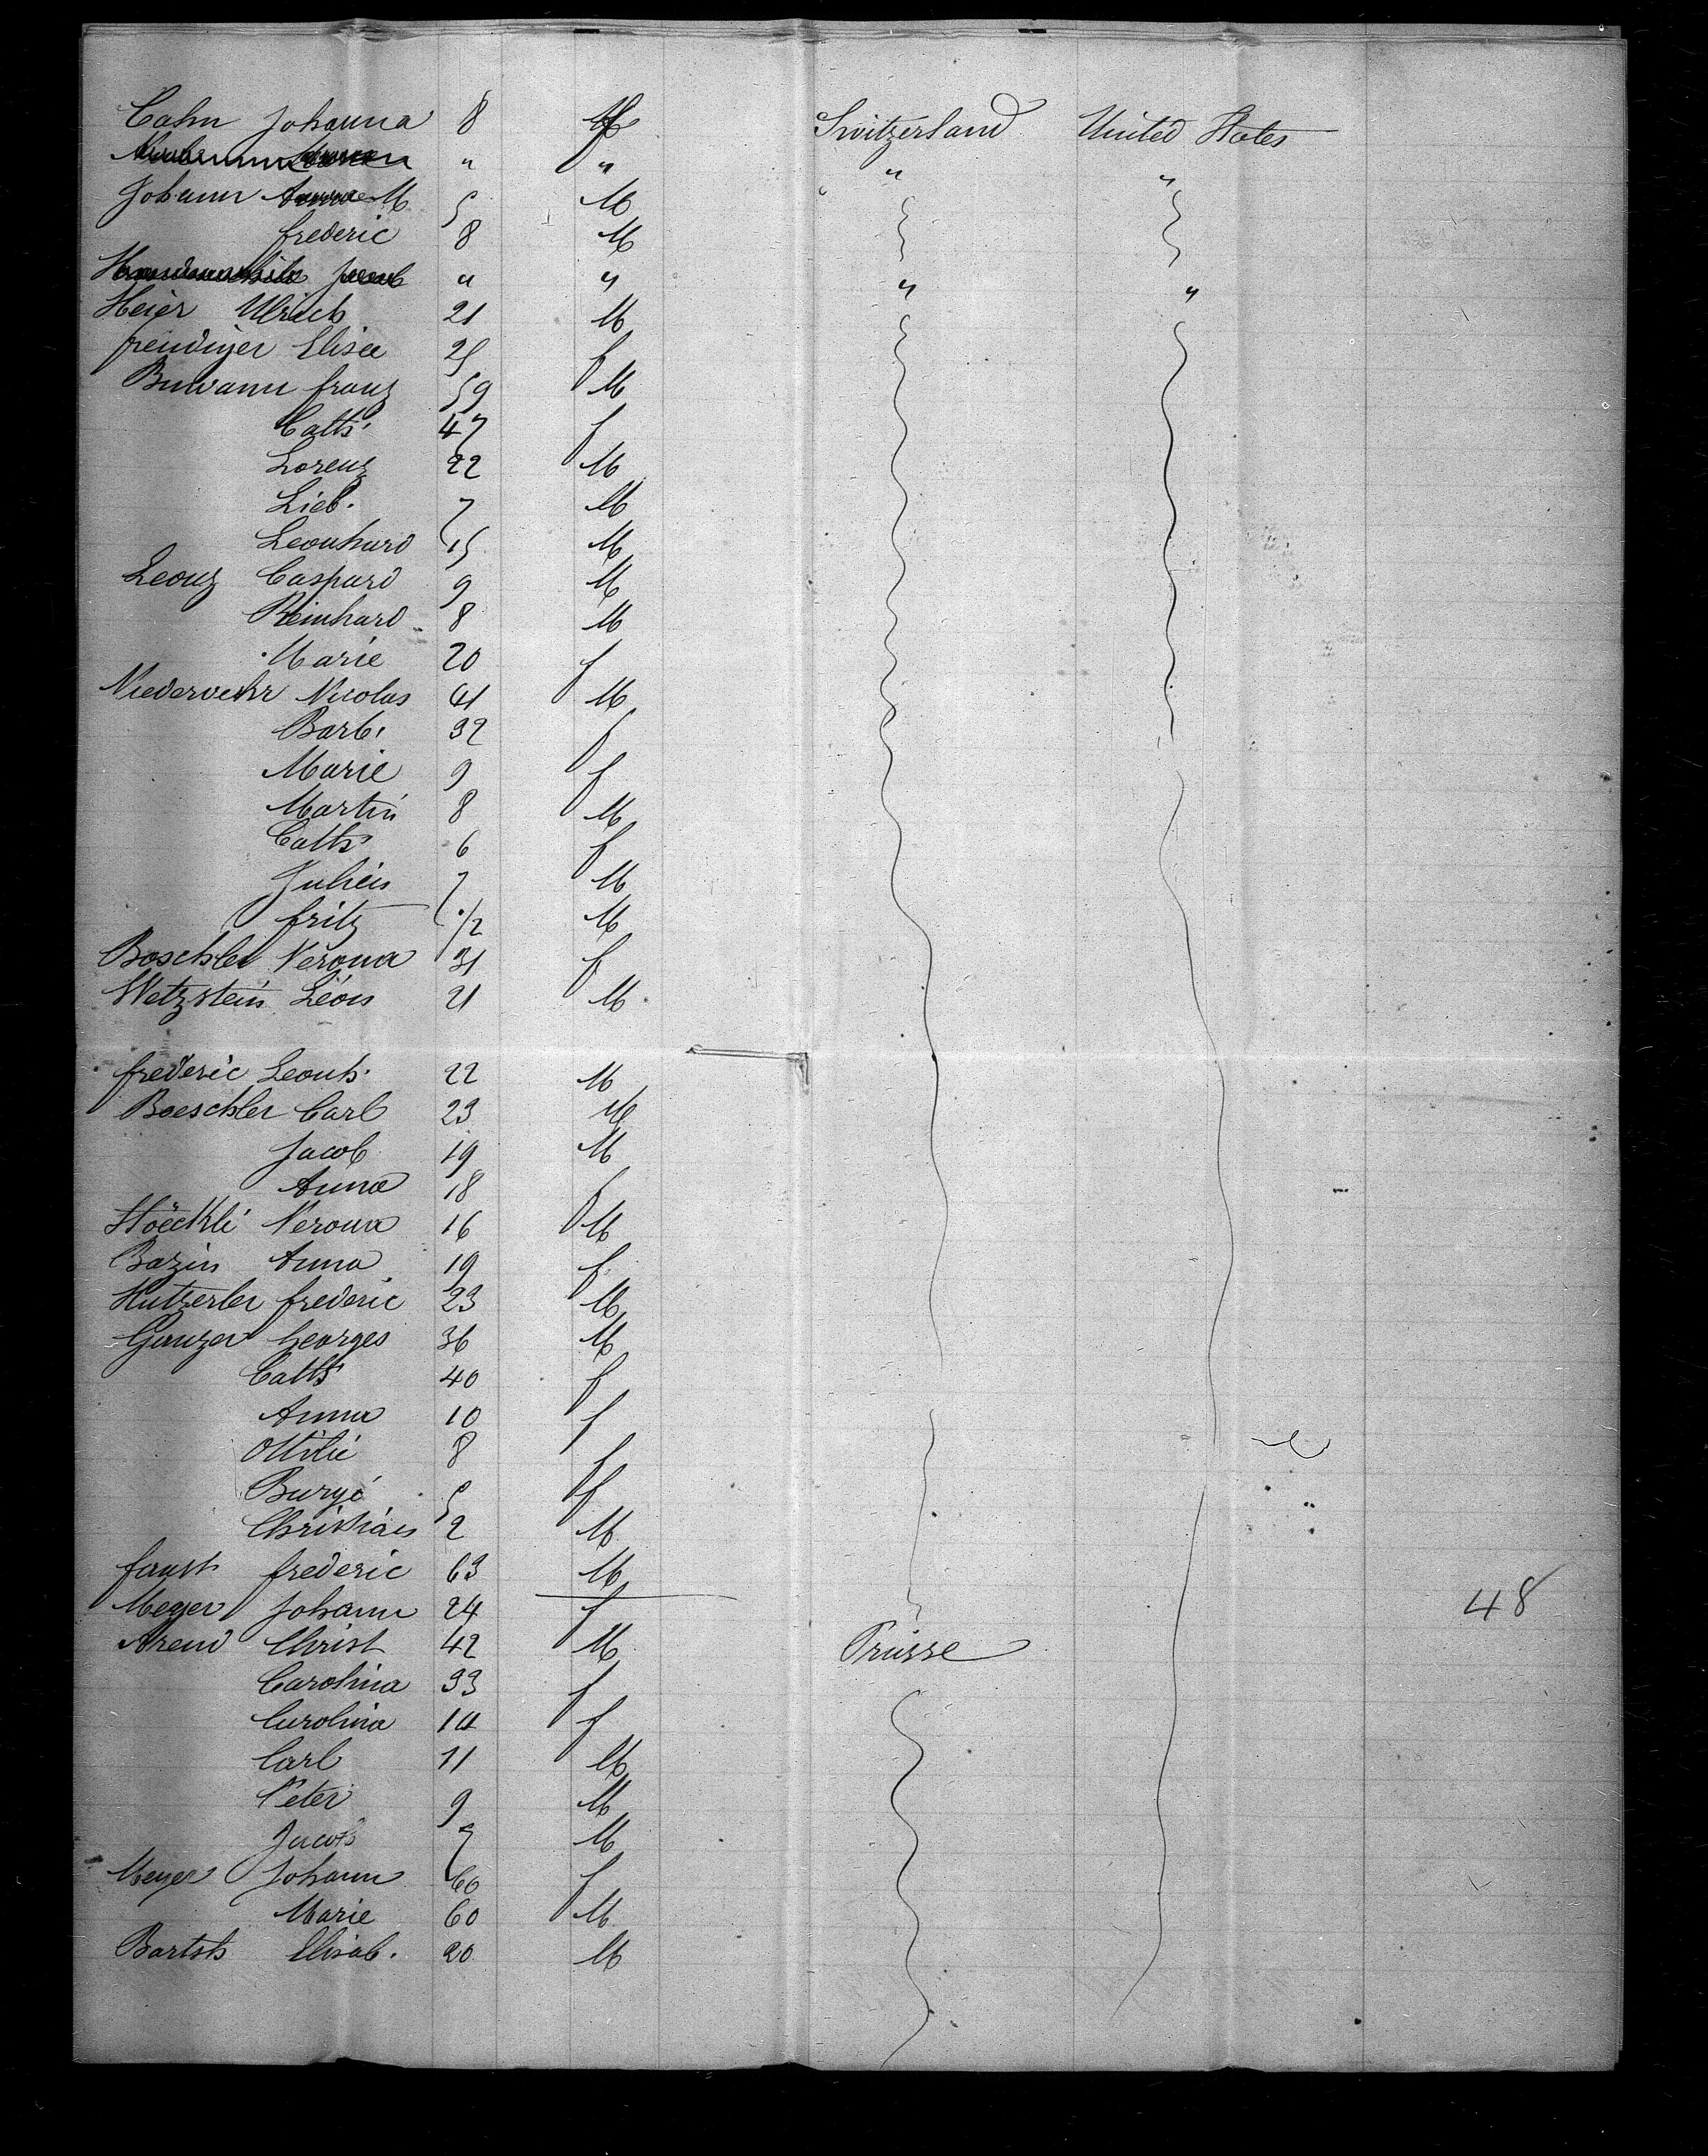 Cahn Johanna 8 f Switzerland United States
" " " "
Johann M 5 M
frederic 8 M
" " " "
Heier Ulrich 21 M
freidiger Elisee 25 f
Buwann franz 59 M
Cath. 47 f
Lorenz 22 M
Lieb. 7 M
Leonhard 15 M
Leonz Caspard 9 M
Reinhard 8 M
Marie 20 f
Niederwehr Nicolas 41 M
Barb. 32 f
Marie 9 f
Martin 8 M
Cath 6 f
Julien 7 M
fritz 1/2 M
Boschler Verona 31 f
Wetzstein Léon 21 M
frederic Leonh. 22 M
Boeschler Carl 23 M
Jacob 19 M
Anna 18 f
Stoeckli Verona 16 M
Bazin Anna 19 f
Hutzerler frederic 23 M
Ganzer Georges 36 M
Cath 40 f
Anna 10 f
Ottilie 8 f
5 f
Christian 2 M
faust frederic 63 M
Meyer Johann 24 f 48
Arend Christ 42 M Prusse
Carolina 33 f
Carolina 14 f
Carl 11 M
Peter 9 M
Jacob 7 M
Meyer Johann 60 f
Marie 60 M
Bartsh Elisab. 20 M